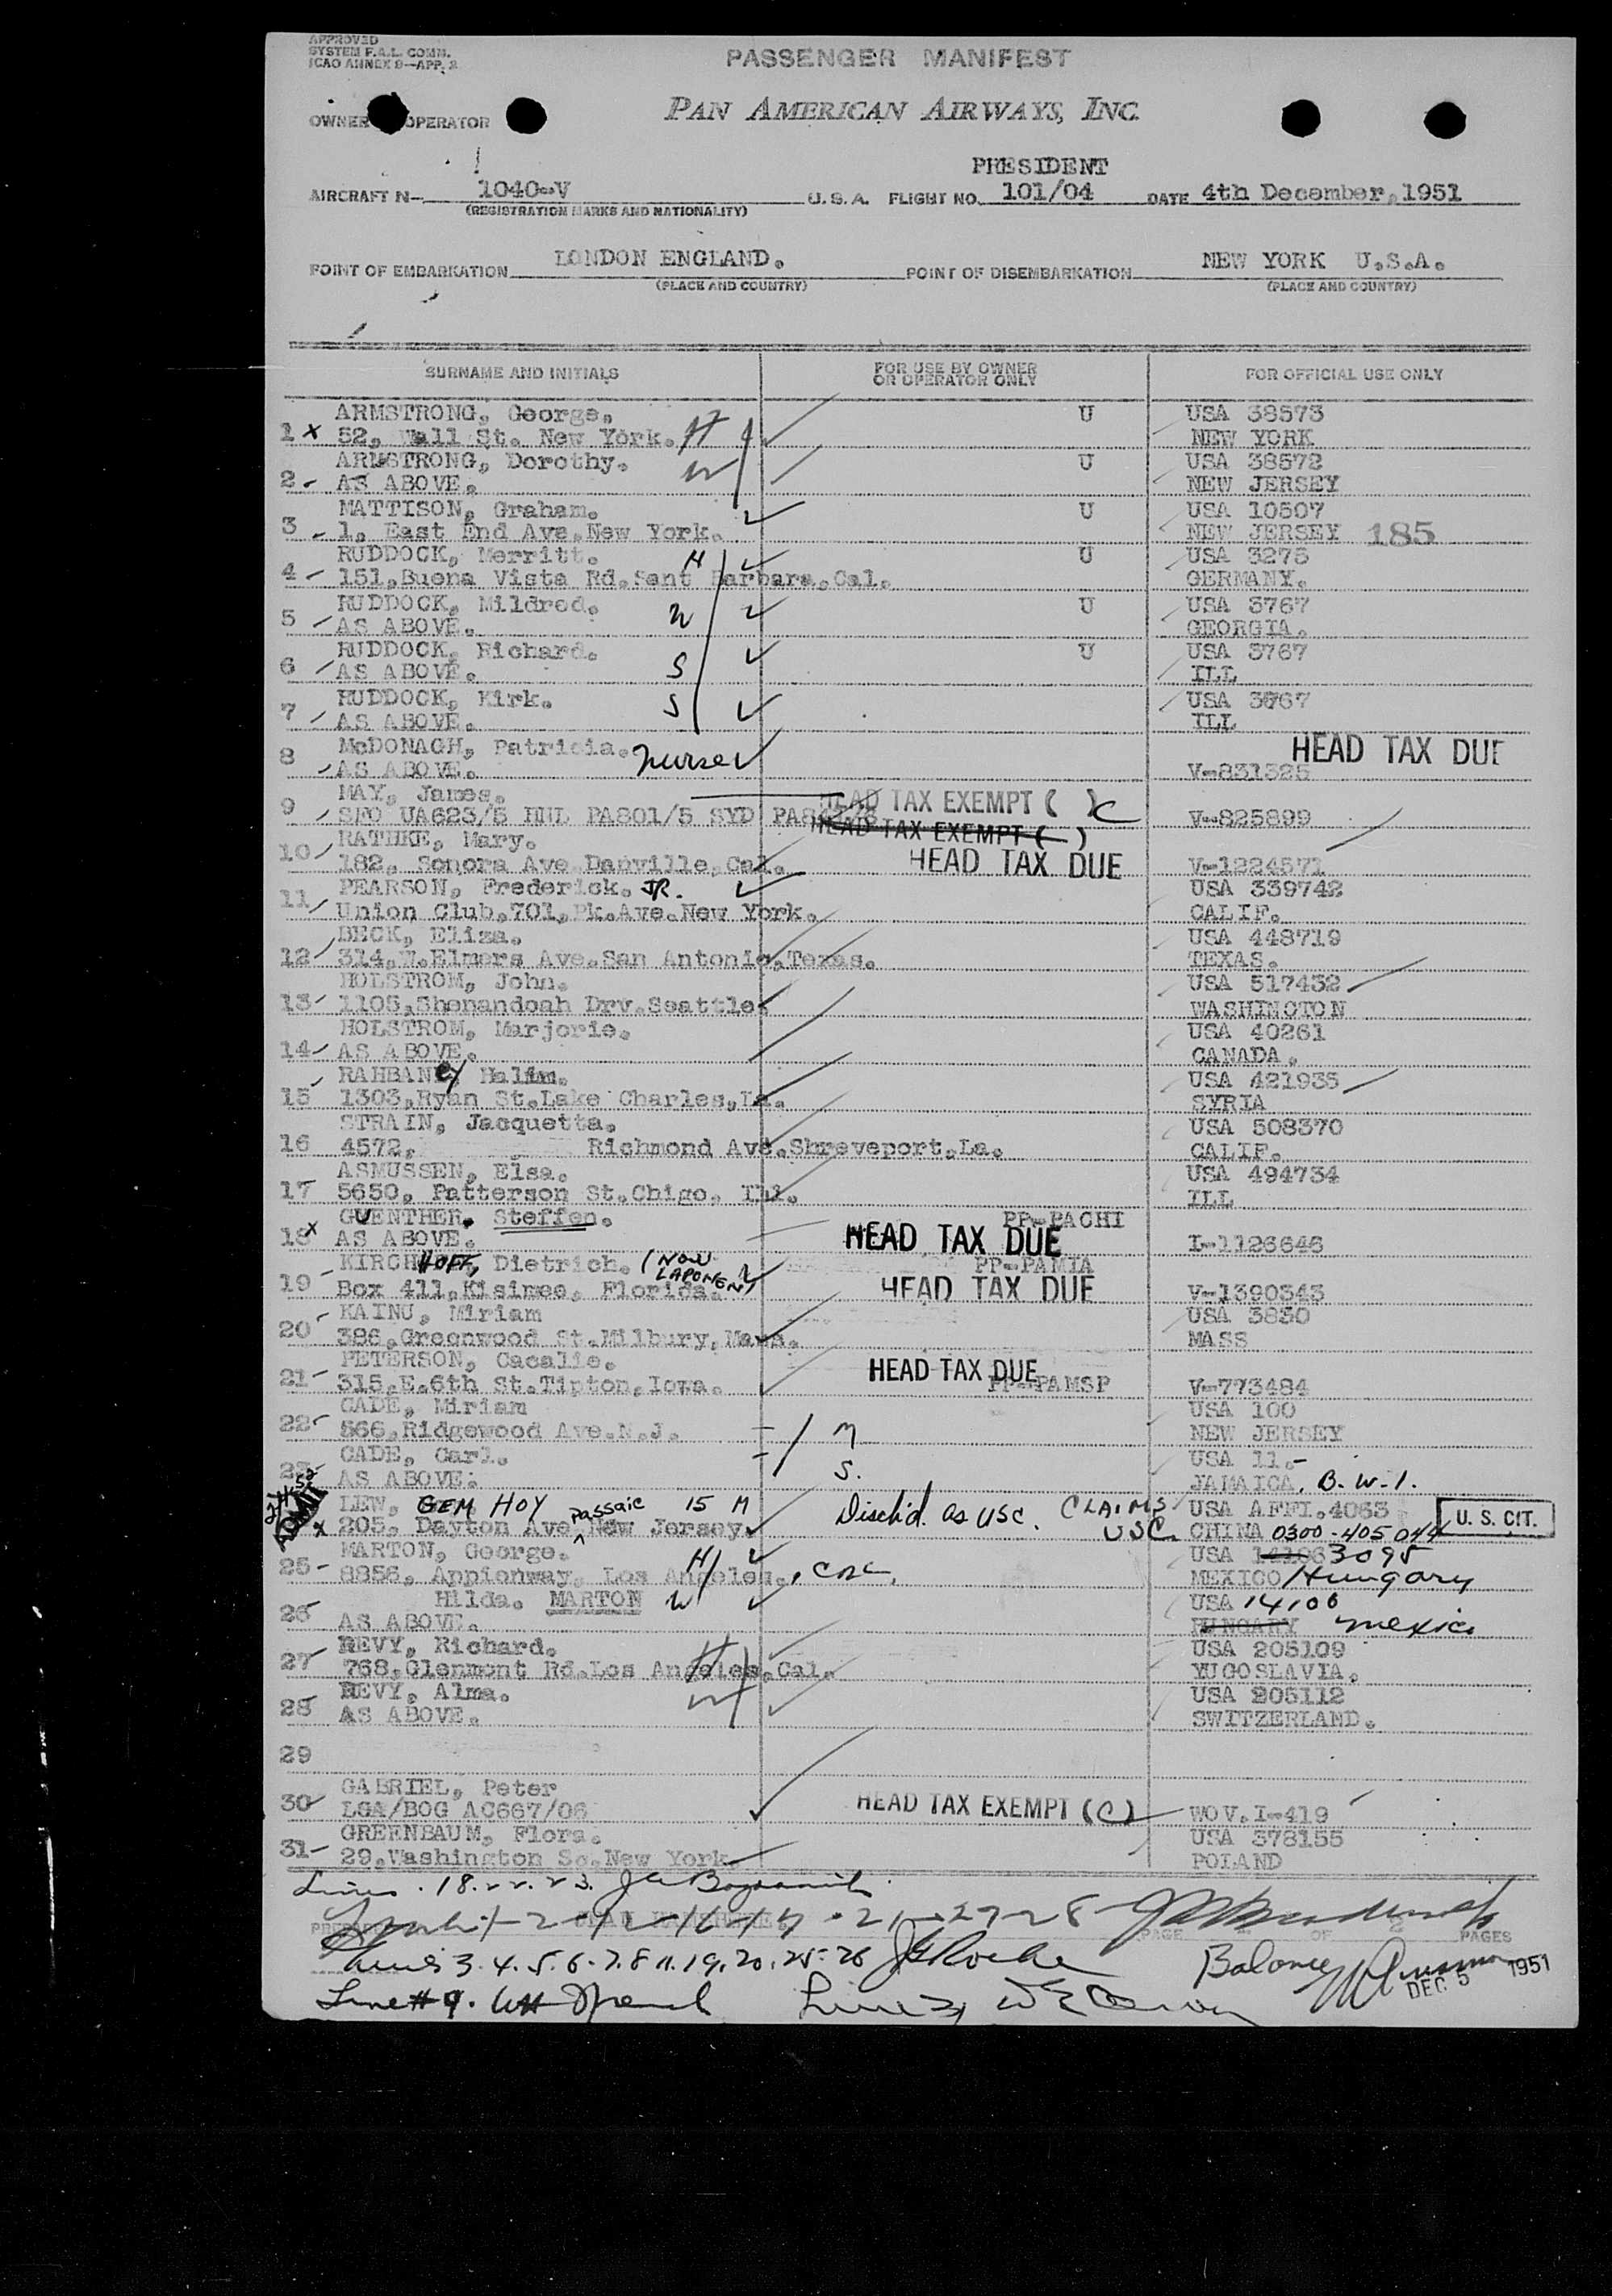 APPROVED
SYSTEM F.A.L. COMM.
ICAO ANNEX 9—APP. 2
PASSENGER MANIFEST
OWNER OPERATOR
PAN AMERICAN AIRWAYS, INC.
PRESIDENT
AIRCRAFT N— 1040-V U.S.A. FLIGHT NO. 101/04 DATE 4th December,1951
(REGISTRATION MARKS AND NATIONALITY)
POINT OF EMBARKATION LONDON ENGLAND. POINT OF DISEMBARKATION NEW YORK U.S.A.
(PLACE AND COUNTRY) (PLACE AND COUNTRY)
SURNAME AND INITIALS FOR USE BY OWNER OR OPERATOR ONLY FOR OFFICIAL USE ONLY
ARMSTRONG, George. U USA 38573
1 x 52, Wall St. New York. H NEW YORK
ARMSTRONG, Dorothy. U USA 38572
2 - AS ABOVE. W NEW JERSEY
MATTISON, Graham. U USA 10507
3 - 1, East End Ave,New York. NEW JERSEY 185
RUDDOCK, Merritt. H U USA 3275
4 - 151,Buena Vista Rd.Sant Barbara,Cal. GERMANY.
RUDDOCK, Mildred. W U USA 3767
5 AS ABOVE. GEORGIA.
RUDDOCK, Richard. U USA 3767
6 AS ABOVE. S ILL
RUDDOCK, Kirk. S USA 3767
7 AS ABOVE. ILL
McDONAGH, Patricia. nurse HEAD TAX DUE
8 AS ABOVE. V-831325
MAY, James. HEAD TAX EXEMPT ( ) C
9 SFO UA623/5 HNL PA801/5 SYD V-825899
HEAD TAX EXEMPT ( )
RATHKE, Mary.
10 182, Sonora Ave Danville,Cal. HEAD TAX DUE V-1224571
PEARSON, Frederick. JR. USA 339742
11 Union Club,701,Pk.Ave.New York. CALIF.
BECK, Eliza. USA 448719
12 314,W.Elmera Ave.San Antonio,Texas. TEXAS.
HOLSTROM, John. USA 517432
13 1105,Shenandoah Drv.Seattle. WASHINGTON
HOLSTROM, Marjorie. USA 40261
14 AS ABOVE. CANADA.
RAHBANey Halim. USA 421935
15 1303,Ryan St.Lake Charles,La. SYRIA
STRAIN, Jacquetta. USA 508370
16 4572, Richmond Ave.Shreveport,La. CALIF.
ASMUSSEN, Elsa. USA 494734
17 5650, Patterson St.Chigo. Ill. ILL
GUENTHER. Steffen. PP-PACHI
18 x AS ABOVE. HEAD TAX DUE I-1126646
KIRCHHOFF, Dietrich. (NOW PP-PAMIA
LAPOMEN)
19 Box 411,Kisimee, Florida. HEAD TAX DUE V-1390343
KAINU, Miriam USA 3830
20 386,Greenwood St.Milbury,Mass. MASS
PETERSON, Cacalie. HEAD TAX DUE
21 315,E.6th St.Tipton,Iowa. PP-PAMSP V-773484
CADE, Miriam USA 100
22 566,Ridgewood Ave.N.J. M NEW JERSEY
CADE, Carl. USA 11.-
23 AS ABOVE. S. JAMAICA, B.W.I.
ADMIT
LEW, GEM HOY Passaic 15 M Disch'd. as USC. CLAIMS USC USA AFFI.4063 U. S. CIT.
x 205, Dayton Ave New Jersey. CHINA 0300-405044
MARTON, George. H USA 3095
25 8856, Appionway, Los Angeles. MEXICO Hungary
Hilda. MARTON W USA 14106
26 AS ABOVE. HUNGARY mexico
REVY, Richard. H USA 205109
27 768,Glenmont Rd.Los Angeles,Cal. YUGOSLAVIA.
REVY, Alma. W USA 205112
28 AS ABOVE. SWITZERLAND.
29
GABRIEL, Peter
30 LGA/BOG AC667/06 HEAD TAX EXEMPT (C) WOV.I-419
GREENBAUM, Flora. USA 378155
31 29,Washington Sq.New York. POLAND
Lines 18. 22. 23.
PAGE OF PAGES
Lines 3. 4. 5. 6. 7. 8 11. 19. 20. 25. 26 Roche Balance
Line # 9. DEC 5 1951